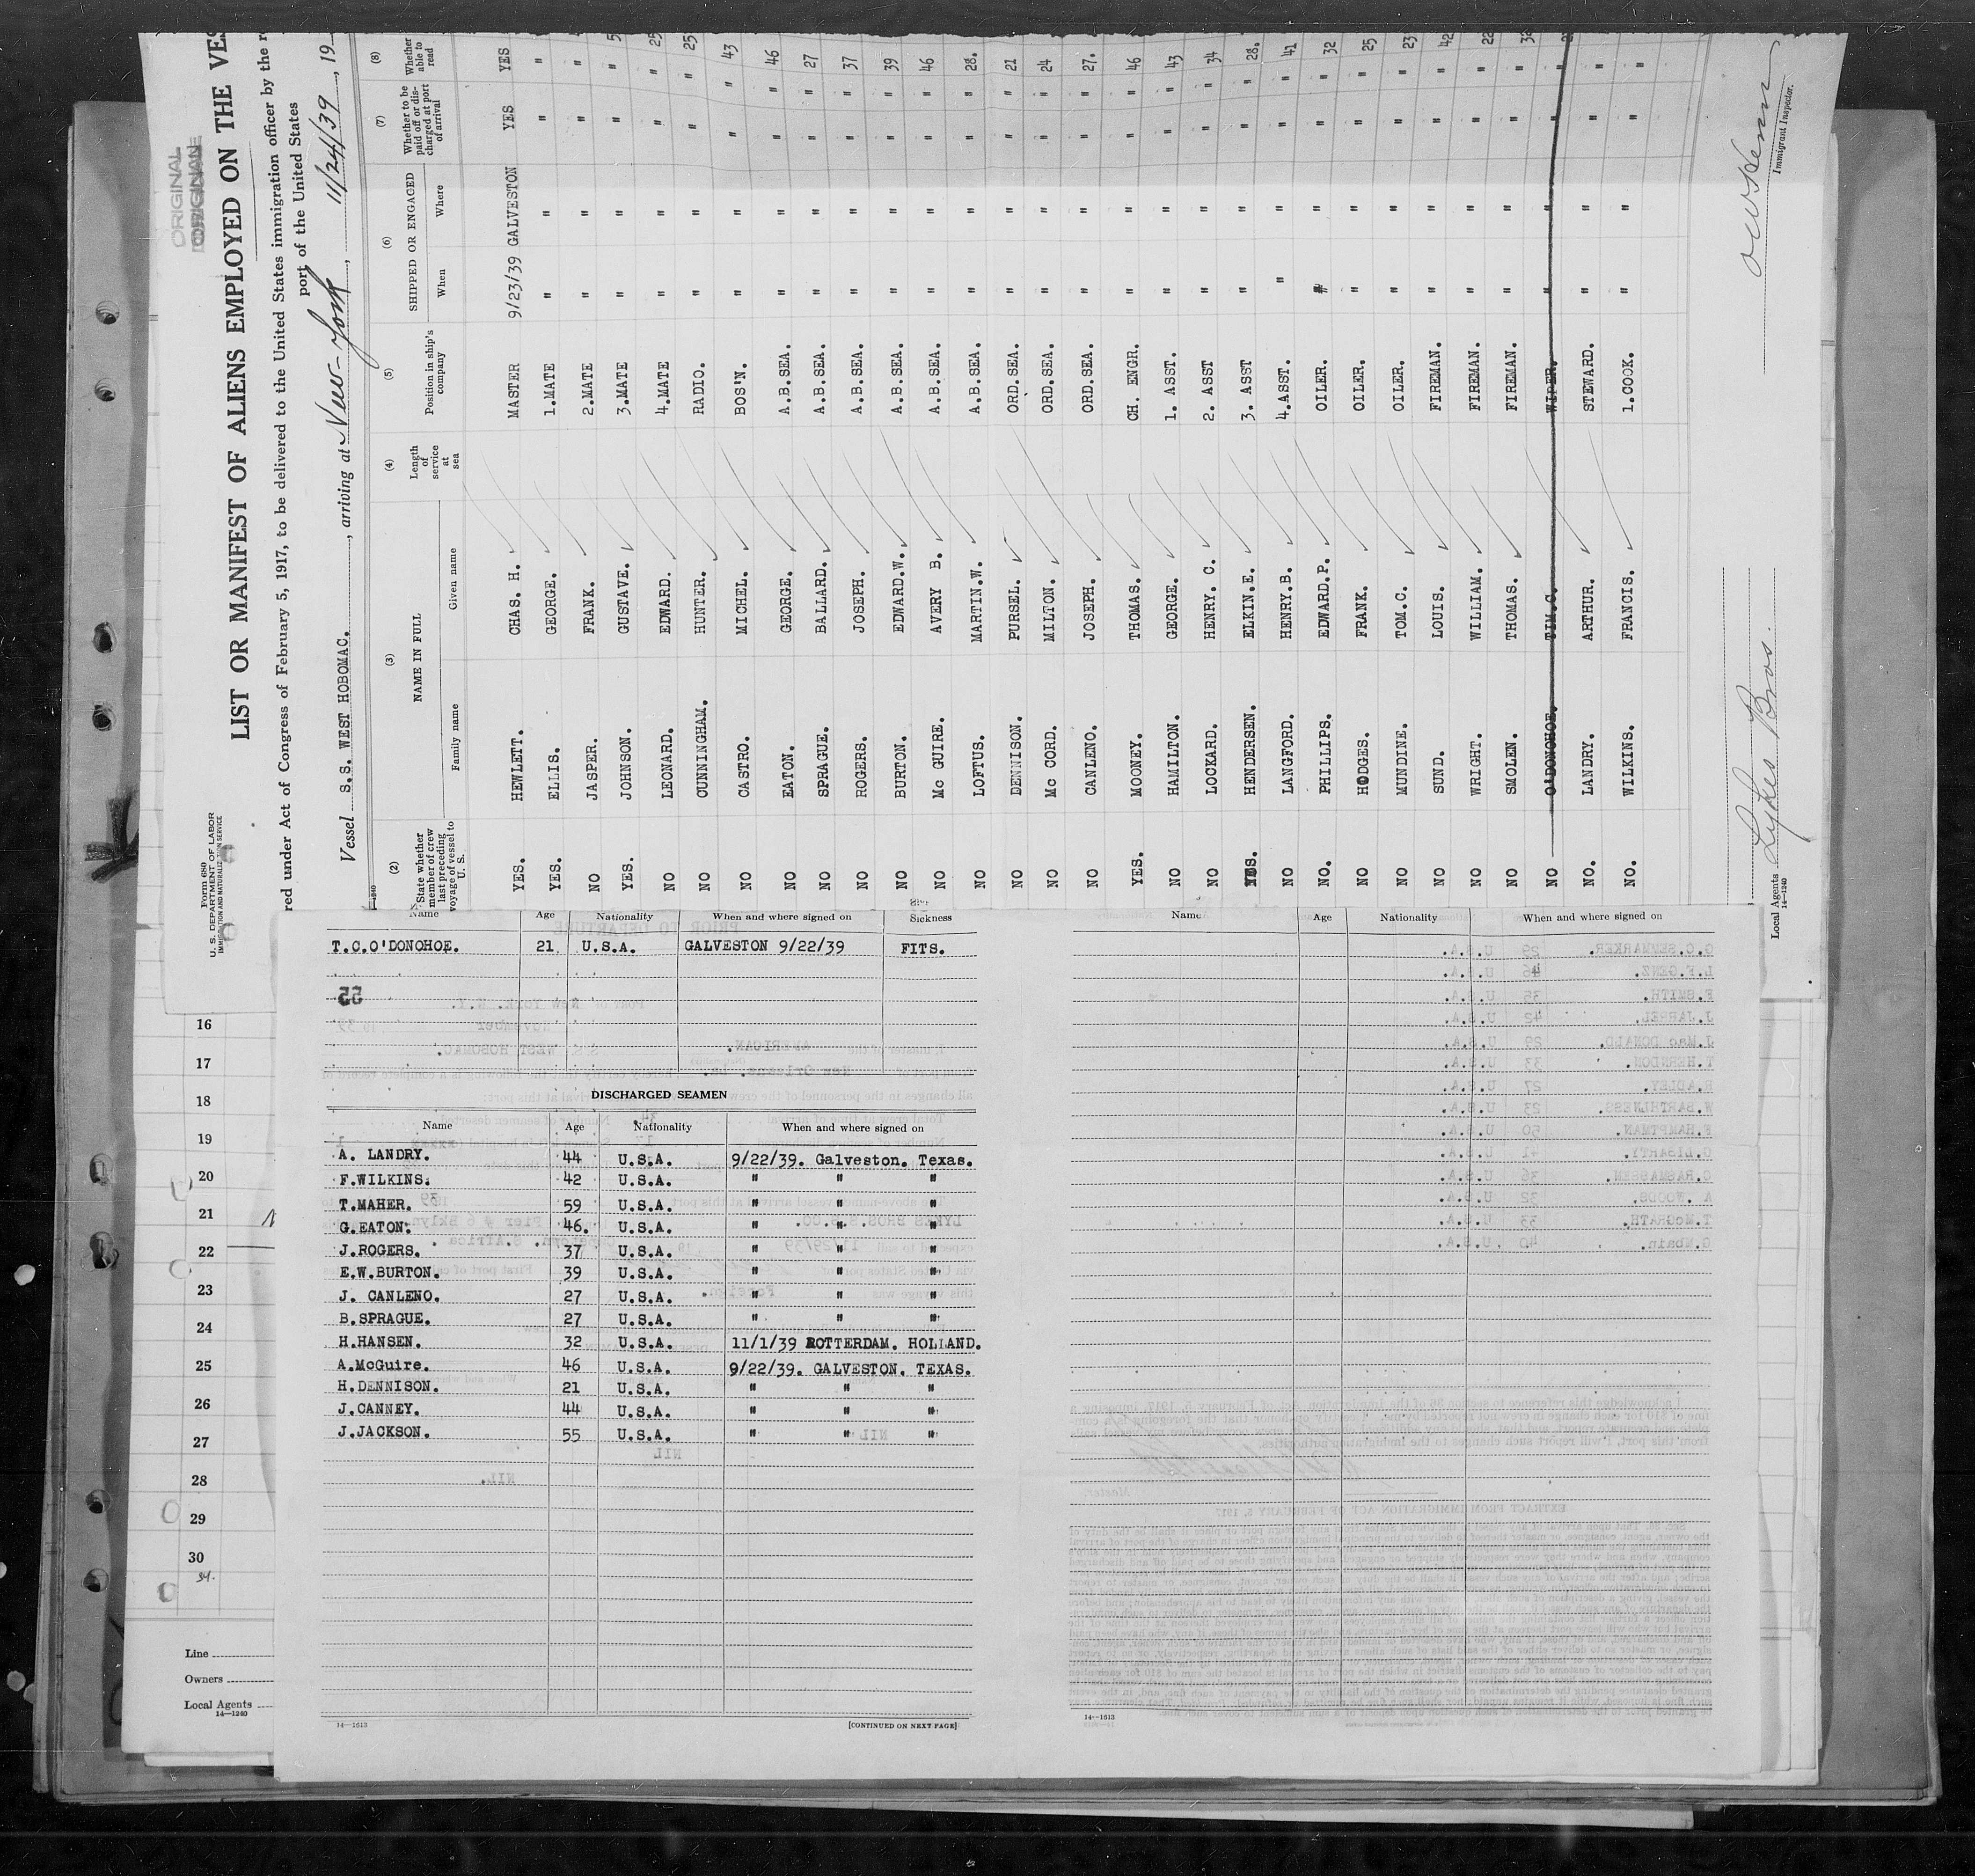 ORIGINAL
ORIGINAL
Form 680
U. S. DEPARTMENT OF LABOR
IMMIGRATION AND NATURALIZATION SERVICE
LIST OR MANIFEST OF ALIENS EMPLOYED ON THE VES
red under Act of Congress of February 5, 1917, to be delivered to the United States immigration officer by the r
port of the United States
Vessel S.S. WEST HOBOMAC. , arriving at New-York , 11/24/39 , 19
(2) (3) (4) (5) (6) (7) (8)
State whether member of crew last preceding voyage of vessel to U. S. NAME IN FULL Family name Given name Length of service at sea Position in ship's company SHIPPED OR ENGAGED When Where Whether to be paid off or discharged at port of arrival Whether able to read
YES. HEWLETT. CHAS. H. MASTER 9/23/39 GALVESTON YES YES
YES. ELLIS. GEORGE. 1.MATE " " " "
NO JASPER. FRANK. 2.MATE " " " "
YES. JOHNSON. GUSTAVE. 3.MATE " " " " 5
NO LEONARD. EDWARD. 4.MATE " " " " 25
NO CUNNINGHAM. HUNTER. RADIO. " " " " 25
NO CASTRO. MICHEL. BOS'N. " " " " 43
NO EATON. GEORGE. A.B.SEA. " " " " 46
NO SPRAGUE. BALLARD. A.B.SEA. " " " " 27
NO ROGERS. JOSEPH. A.B.SEA. " " " " 37
NO BURTON. EDWARD.W. A.B.SEA. " " " " 39
NO Mc GUIRE. AVERY B. A.B.SEA. " " " " 46
NO LOFTUS. MARTIN.W. A.B.SEA. " " " " 28.
NO DENNISON. PURSEL. ORD.SEA. " " " " 21
NO Mc CORD. MILTON. ORD.SEA. " " " " 24
NO CANLENO. JOSEPH. ORD.SEA. " " " " 27.
YES. MOONEY. THOMAS. CH. ENGR. " " " " 46
NO HAMILTON. GEORGE. 1. ASST. " " " " 43
NO LOCKARD. HENRY. C. 2. ASST " " " " 34
YES. HENDERSEN. ELKIN.E. 3. ASST " " " " 28.
NO LANGFORD. HENRY.B. 4.ASST. " " " " 41
NO. PHILLIPS. EDWARD.P. OILER. " " " " 32
NO HODGES. FRANK. OILER. " " " " 25
NO MUNDINE. TOM.C. OILER. " " " " 23
NO SUND. LOUIS. FIREMAN. " " " " 42
NO WRIGHT. WILLIAM. FIREMAN. " " " " 22
NO SMOLEN. THOMAS. FIREMAN. " " " "
NO O'DONOHOE. TIM.C. WIPER. " "
NO. LANDRY. ARTHUR. STEWARD. " " " "
NO. WILKINS. FRANCIS. 1.COOK. " " " "
Local Agents Lykes Bros.
14—1240
Immigrant Inspector.
Name Age Nationality When and where signed on Sickness
T.C.O'DONOHOE. 21 U.S.A. GALVESTON 9/22/39 FITS.
55
DISCHARGED SEAMEN
Name Age Nationality When and where signed on
A. LANDRY. 44 U.S.A. 9/22/39. Galveston. Texas.
F.WILKINS. 42 U.S.A. " " "
T.MAHER. 59 U.S.A. " " "
G.EATON. 46. U.S.A. " " "
J.ROGERS. 37 U.S.A. " " "
E.W.BURTON. 39 U.S.A. " " "
J. CANLENO. 27 U.S.A. " " "
B.SPRAGUE. 27 U.S.A. " " "
H.HANSEN. 32 U.S.A. 11/1/39 ROTTERDAM. HOLLAND.
A.McGuire. 46 U.S.A. 9/22/39. GALVESTON. TEXAS.
H.DENNISON. 21 U.S.A. " " "
J.CANNEY. 44 U.S.A. " " "
J.JACKSON. 55 U.S.A. " " "
14—1613
[CONTINUED ON NEXT PAGE]
Name Age Nationality When and where signed on
14—1613
16
17
18
19
20
21
22
23
24
25
26
27
28
29
30
Line
Owners
Local Agents
14—1240